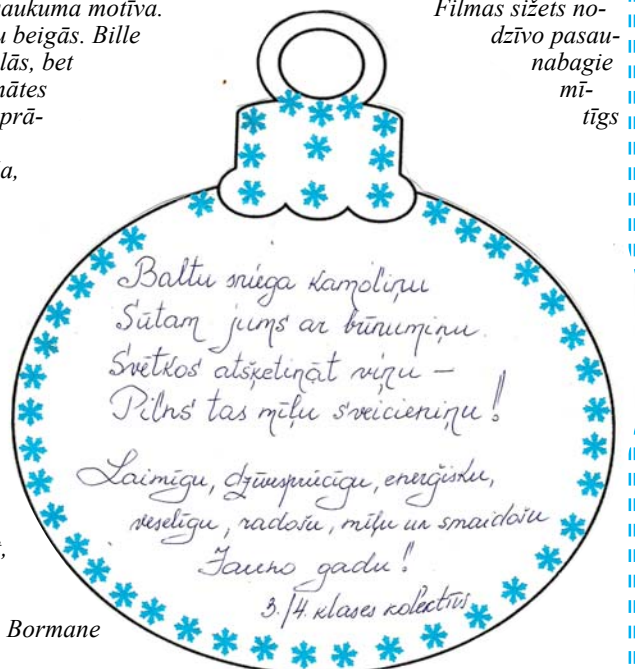 aukuma motīva.
u beigās. Bille
lās, bet
nātes
prā-
a,
t,
Bormane
Filmas sižets no-
dzīvo pasau-
nabagie
mī-
tīgs
Baltu sniega kamoliņu
Sūtam jums ar būrumiņu.
Svētkos atšķetināt viņu –
Pilns tas mīļu sveicieniņu!
Laimīgu, dzīvespriecīgu, enerģisku,
veselīgu, radošu, mīļu un smaidošu
Jauno gadu!
3./4. klases kolektīvs